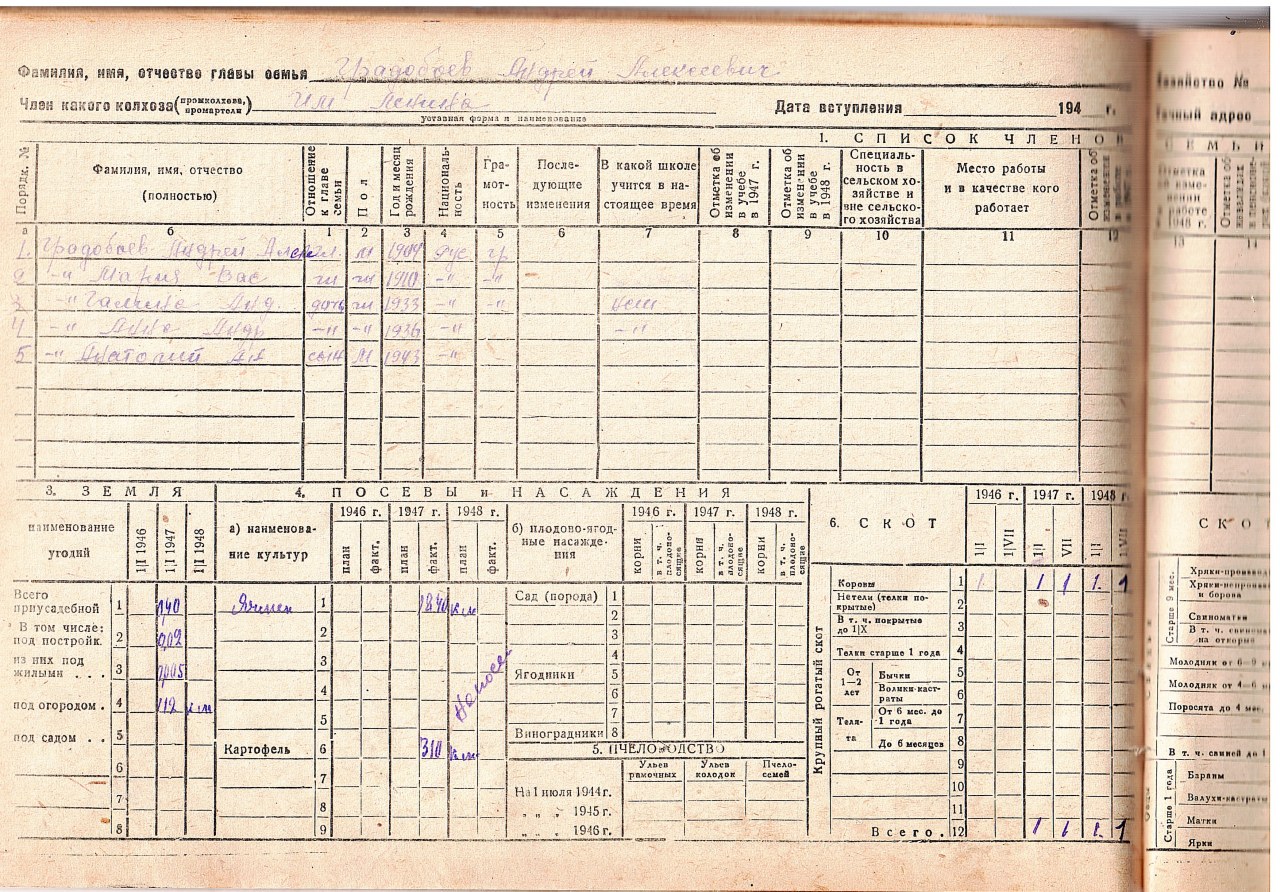 Фамилия, имя, отчество главы семьи Градобоев Андрей Алексеевич
Член какого колхоза (промколхоза, промартели) Им Ленина Дата вступления 194 г.
уставная форма и наименование
1. СПИСОК ЧЛЕНОВ
Порядк. № Фамилия, имя, отчество (полностью) Отношение к главе семьи Пол Год и месяц рождения Националь-ность Гра-мот-ность После-дующие изменения В какой школе учится в на-стоящее время Отметка об изменении в учебе в 1947 г. Отметка об изменении в учебе в 1948 г. Специаль-ность в сельском хо-зяйстве и вне сельско-го хозяйства Место работы и в качестве кого работает Отметка об
а б 1 2 3 4 5 6 7 8 9 10 11 12
1. Градобоев Андрей Алексе гл. м 1904 рус гр
2 -"- Мария Вас ж 1910 -"- -"-
3 -"- Галина Анд. дочь ж 1933 -"- -"-
4 -"- Анна Андр -"- -"- 1936 -"- -"-
5 -"- Анатолий Ан сын м 1943 -"-
3. ЗЕМЛЯ
наименование угодий 1|I 1946 1|I 1947 1|I 1948
Всего приусадебной 1
В том числе: под постройк. 2 0,02
из них под жилыми . . . 3
под огородом . 4
под садом . . 5
6
7
8
4. ПОСЕВЫ и НАСАЖДЕНИЯ
а) наименова-ние культур 1946 г. 1947 г. 1948 г.
план факт. план факт. план факт.
Ячмень 1
2
3
4
5
Картофель 6 310
7
8
9
б) плодово-ягод-ные насажде-ния 1946 г. 1947 г. 1948 г.
корни в т. ч. плодоно-сящие корни в т. ч. плодоно-сящие корни в т. ч. плодоно-сящие
Сад (порода) 1
2
3
4
Ягодники 5
6
7
Виноградники 8
5. ПЧЕЛОВОДСТВО
Ульев рамочных Ульев колодок Пчело-семей
На 1 июля 1944 г.
" " " 1945 г.
" " " 1946 г.
6. СКОТ 1946 г. 1947 г. 1948 г.
1|I 1|VII 1|I VII 1|I 1|VII
Крупный рогатый скот
Коровы 1 1. 1 1 1. 1
Нетели (телки по-крытые) 2
В т. ч. покрытые до 1|X 3
Телки старше 1 года 4
От 1—2 лет Бычки 5
Волики-каст-раты 6
Теля-та От 6 мес. до 1 года 7
До 6 месяцев 8
9
10
11
Всего. 12 1 1 1. 1
озяйство №
чный адрес
СЕМЬИ
13 14
СКОТ
Старше 9 мес.
Хряки-произво
Хряки-непроизв и борова
Свиноматки
В т. ч. свином на откорме
Молодняк от 6—9
Молодняк от 4—6
Поросята до 4 мес.
В т. ч. свиней до 1
Старше 1 года
Бараны
Валухи-кастраты
Матки
Ярки